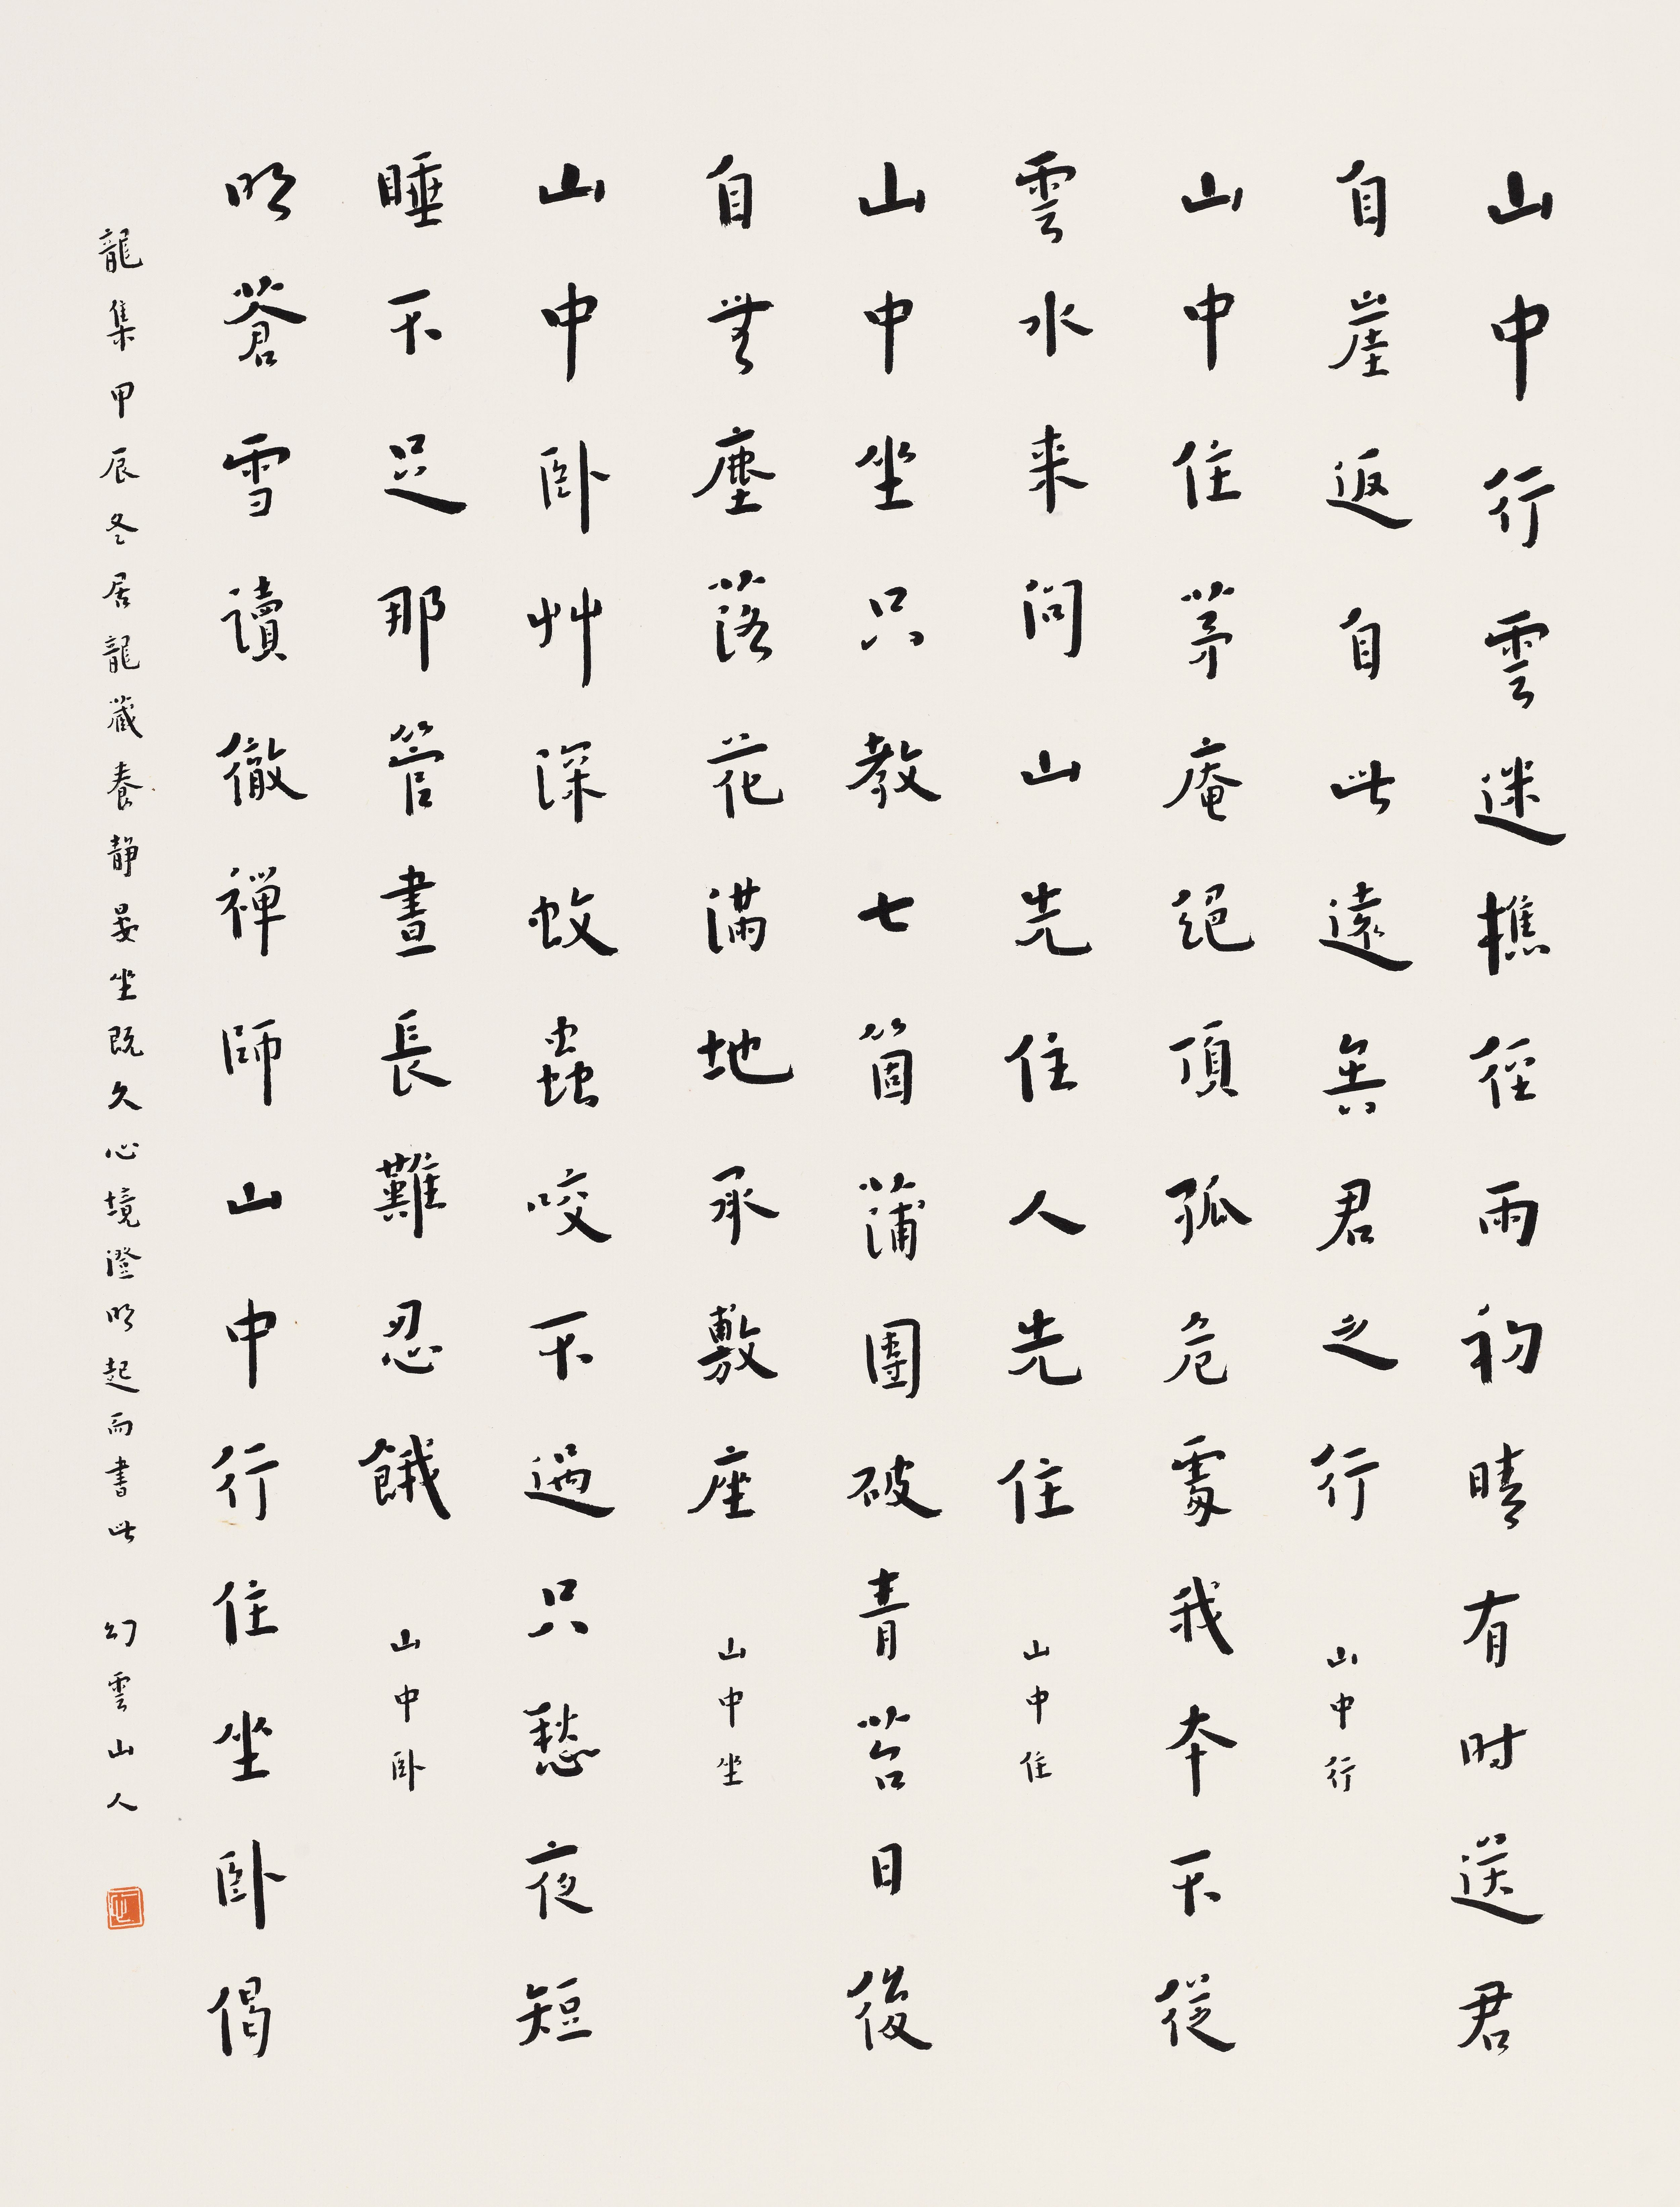 山中行雲迷樵徑雨初晴有时送君
自崖返自此遠矣君之行 山中行
山中住茅庵絕頂孤危處我本不從
雲水来问山先住人先住 山中住
山中坐只教七箇蒲團破青苔日後
自無塵落花滿地承敷座 山中坐
山中卧艸深蚊蟲咬不過只愁夜短
睡不足那管晝長難忍餓 山中卧
明蒼雪讀徹禪師山中行住坐卧偈
龍集甲辰冬居龍藏養静晏坐既久心境澄明起而書此 幻雲山人